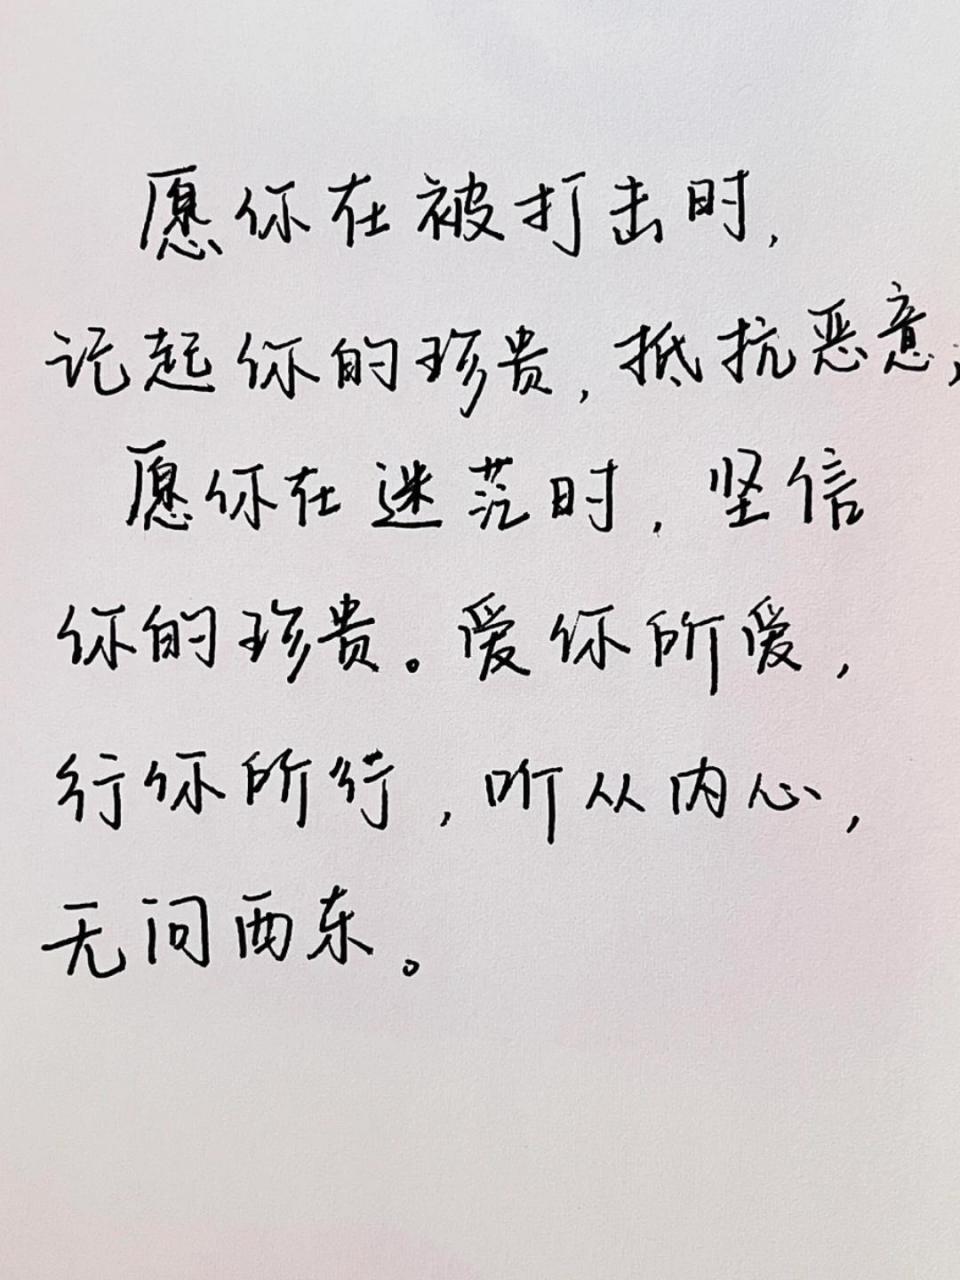 愿你在被打击时,
记起你的珍贵,抵抗恶意;
愿你在迷茫时,坚信
你的珍贵。爱你所爱,
行你所行,听从内心,
无问西东。